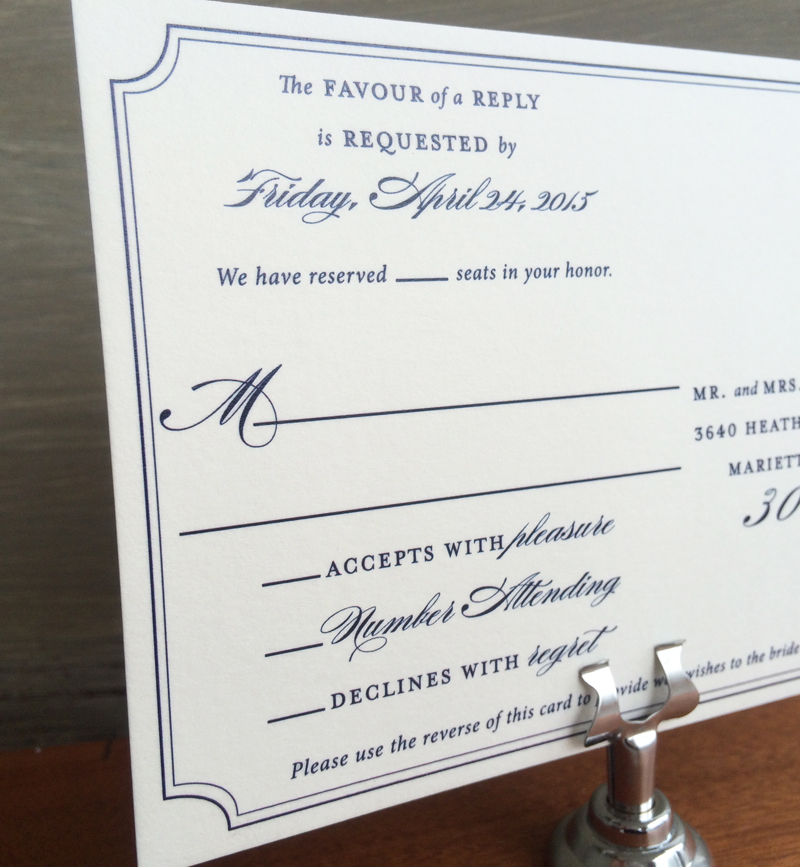 The FAVOUR of a REPLY
is REQUESTED by
Friday, April 24, 2015
We have reserved ____ seats in your honor.
M
ACCEPTS WITH pleasure
Number Attending
DECLINES WITH regret
Please use the reverse of this card to wishes to the bride
MR. and MRS.
3640
30